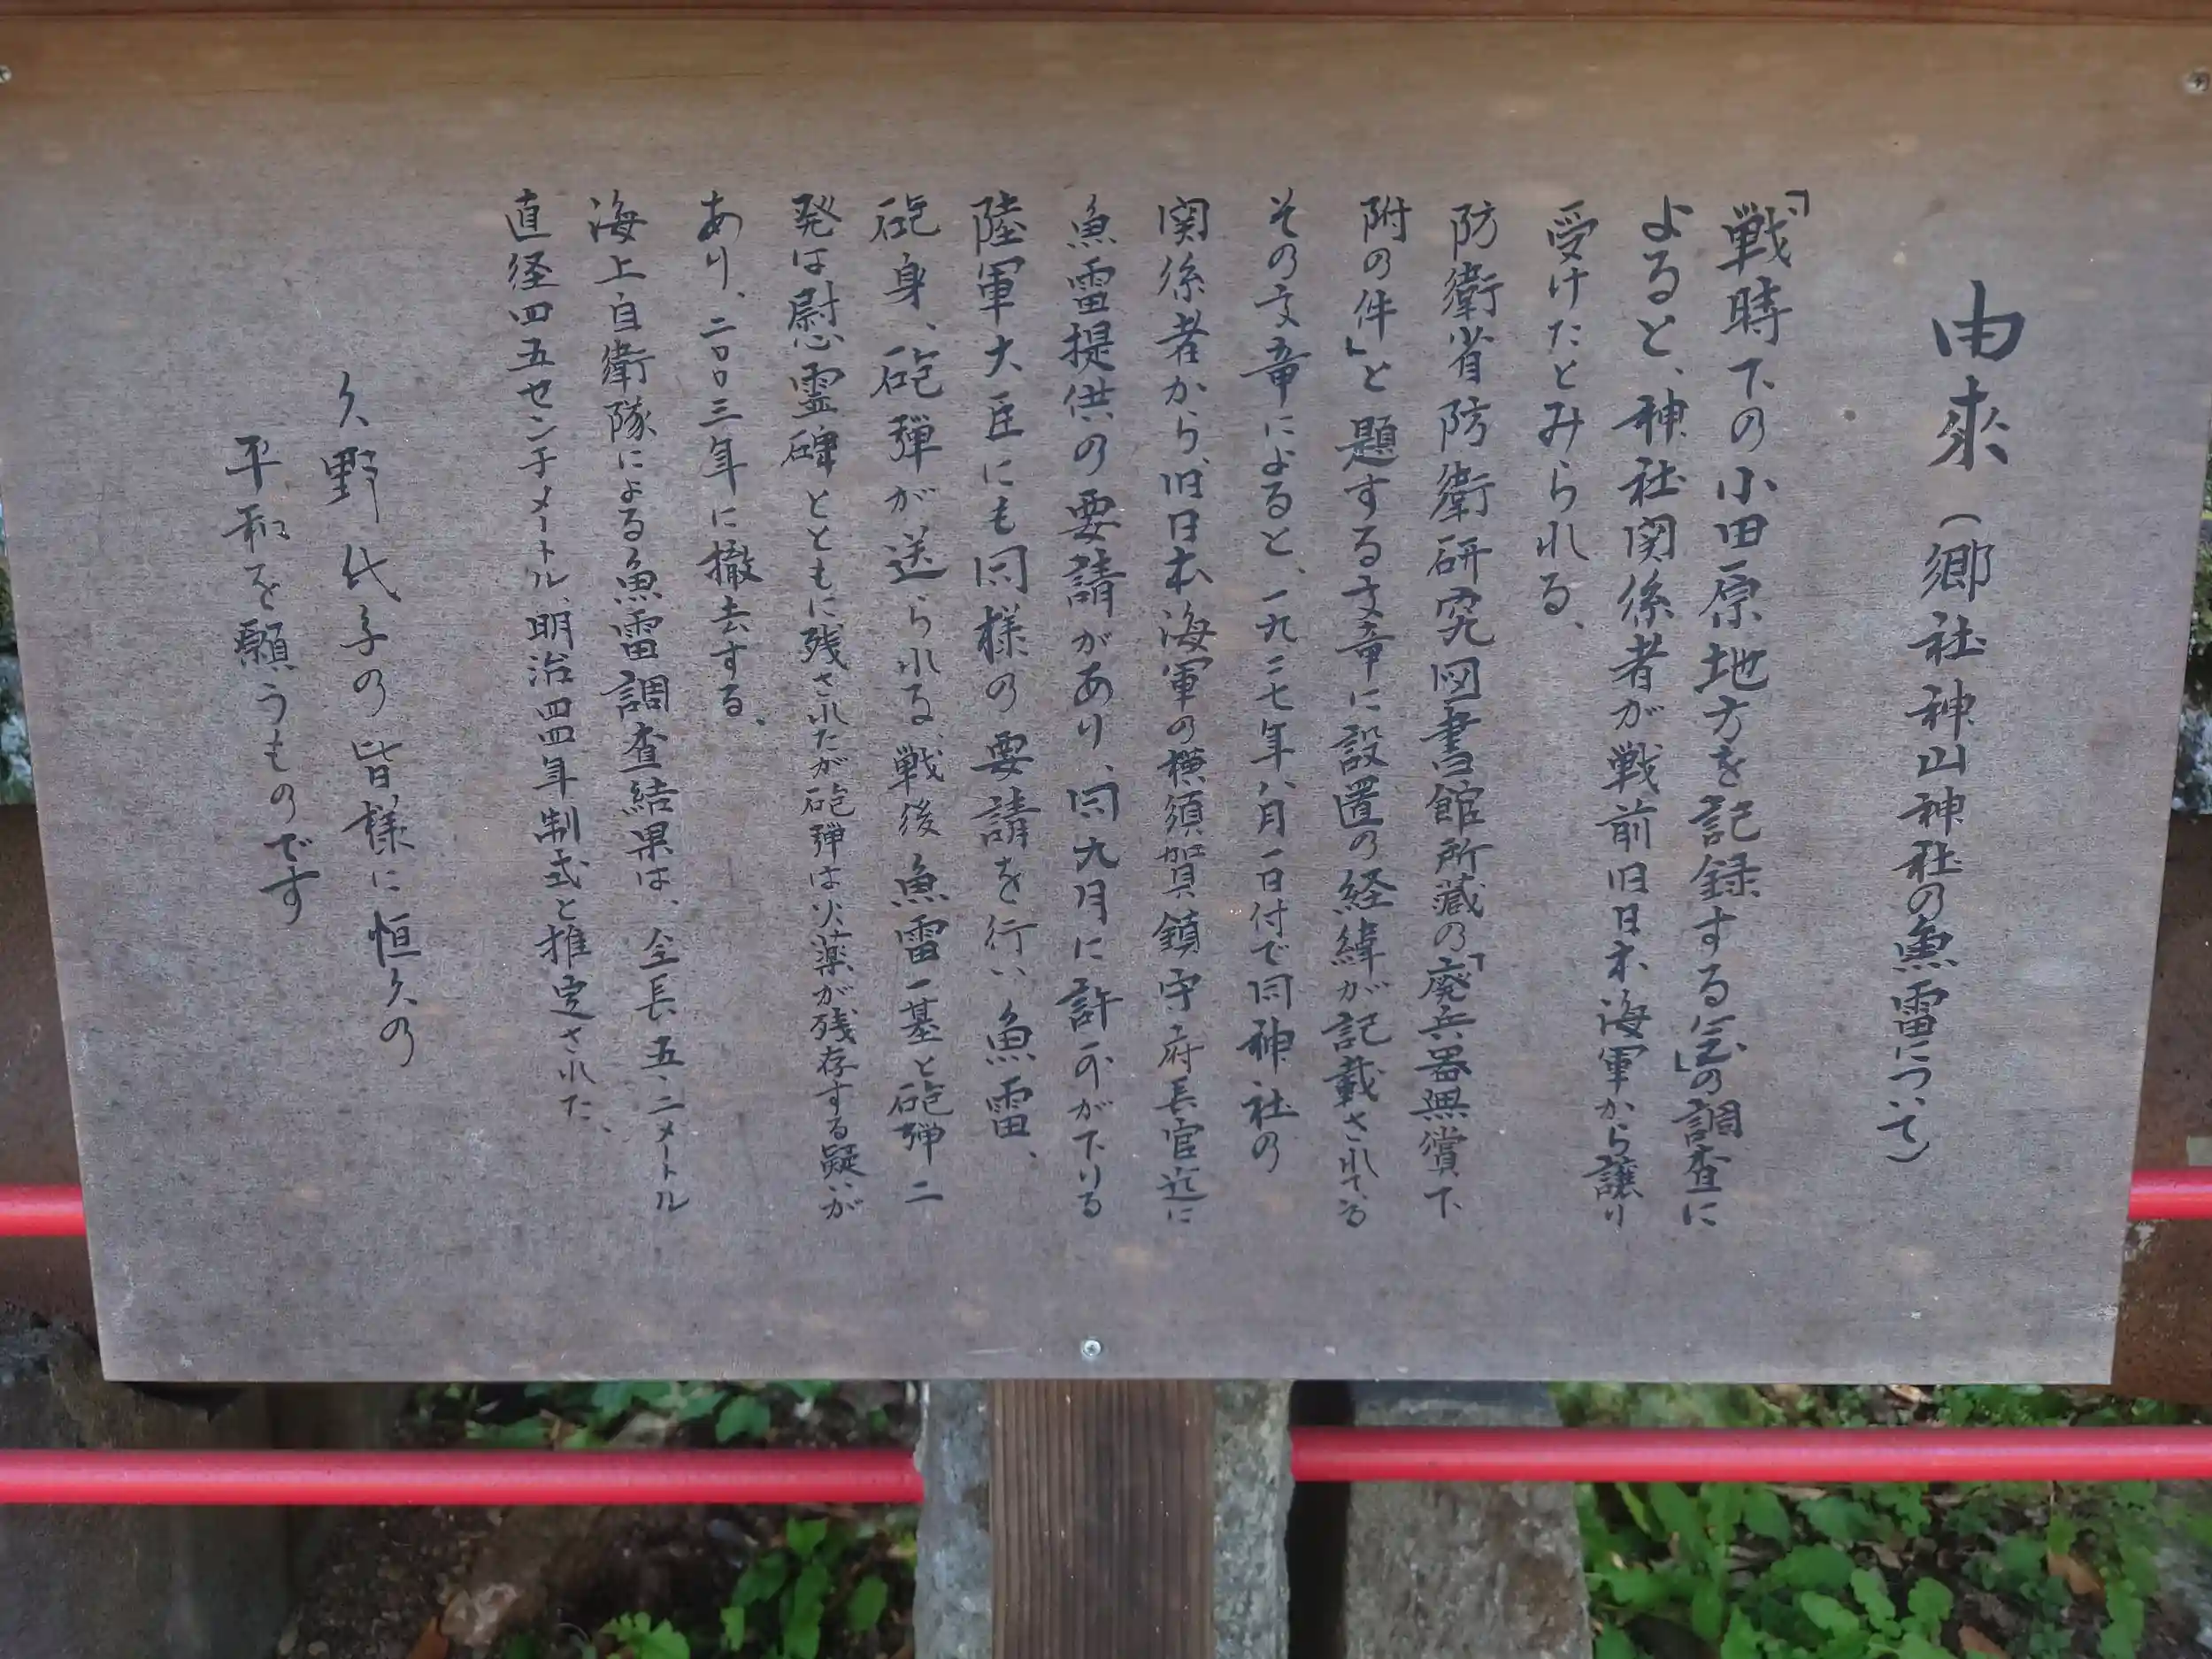 由來(郷社神山神社の魚雷について)
「戦時下の小田原地方を記録する会」の調査に
よると、神社関係者が戦前旧日本海軍から譲り
受けたとみられる、
防衛省防衛研究図書館所蔵の「廃兵器無償下
附の件」と題する文章に設置の経緯が記載されている
その文章によると、一九二七年八月一日付で同神社の
関係者から、旧日本海軍の横須賀鎮守府長官迄に
魚雷提供の要請があり、同九月に許可が下りる
陸軍大臣にも同様の要請を行い、魚雷、
砲身、砲弾が送られる、戦後魚雷一基と砲弾二
発は慰霊碑とともに残されたが砲弾は火薬が残存する疑いが
あり、二〇〇三年に撤去する、
海上自衛隊による魚雷調査結果は、全長五・二メートル
直径四五センチメートル、明治四四年制式と推定された、
久野氏子の皆様に恒久の
平和を願うものです